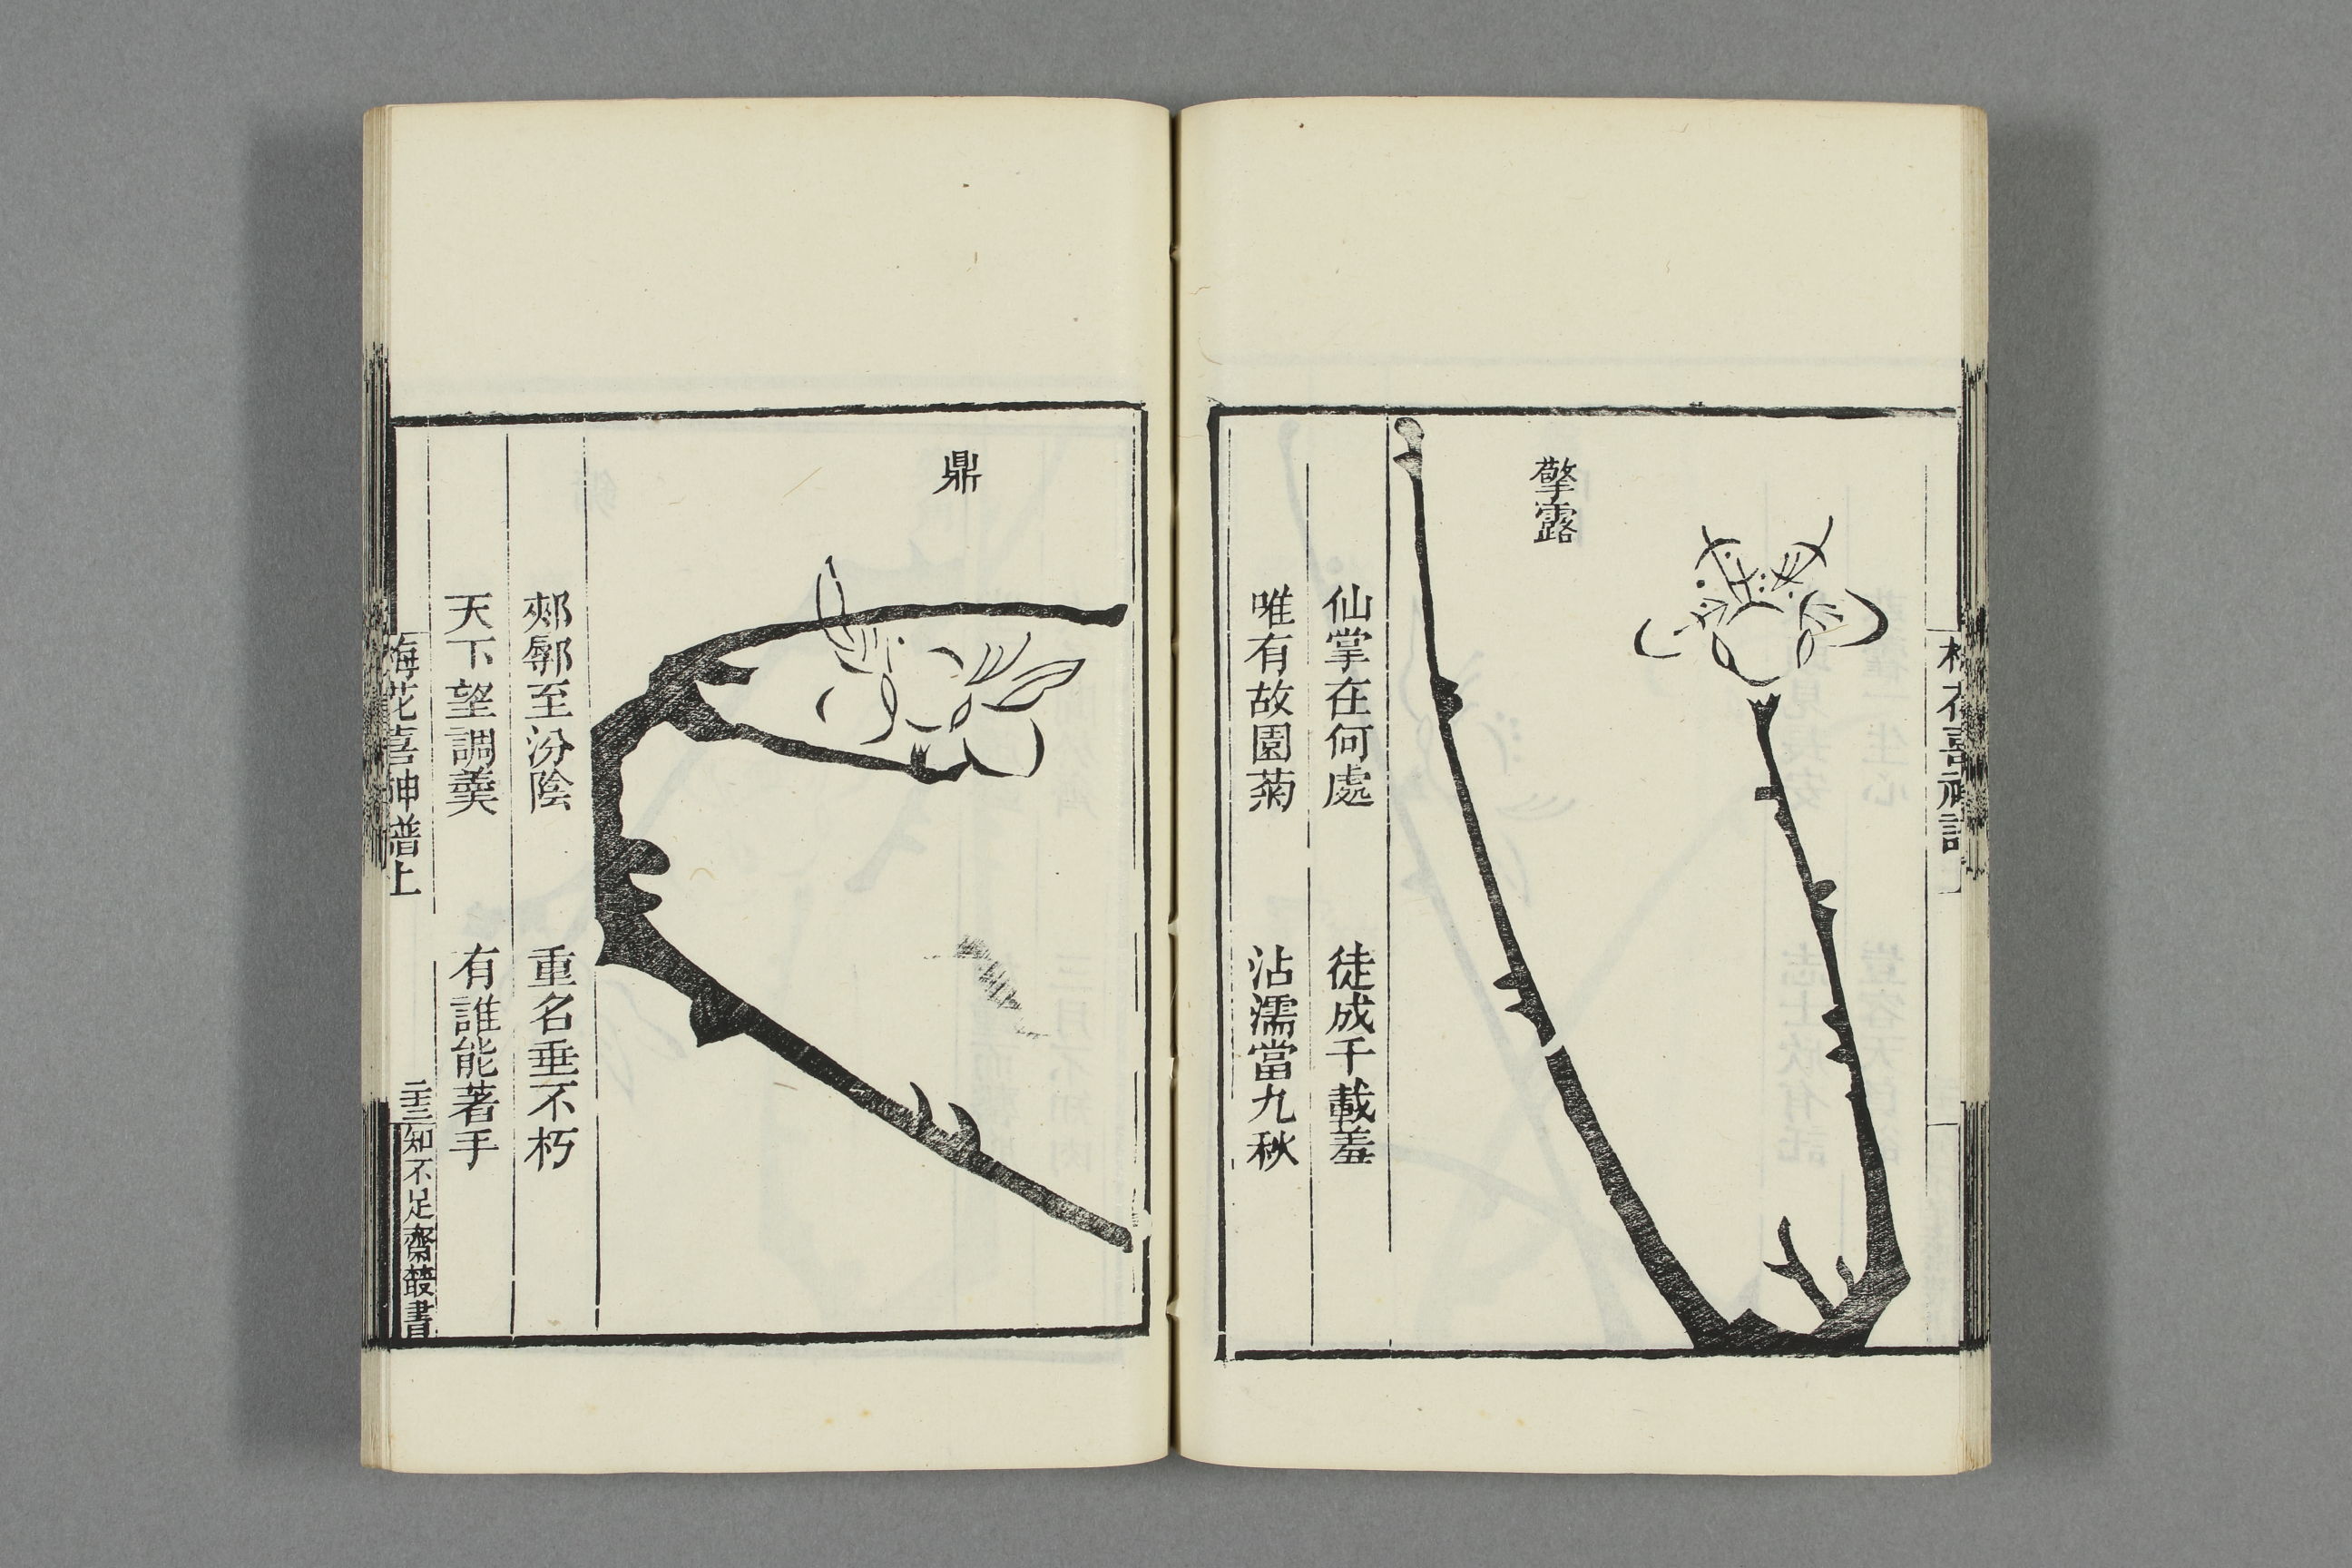 梅花喜神譜
擎露
仙掌在何處 徒成千載羞
唯有故園菊 沾濡當九秋
鼎
郟鄏至汾陰 重名垂不朽
天下望調羹 有誰能著手
梅花喜神譜上 二十三 知不足齋叢書